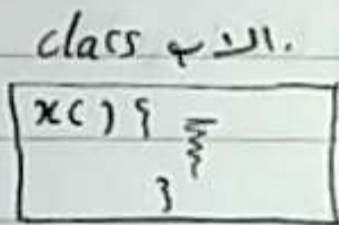 class الاب.
x() {
}